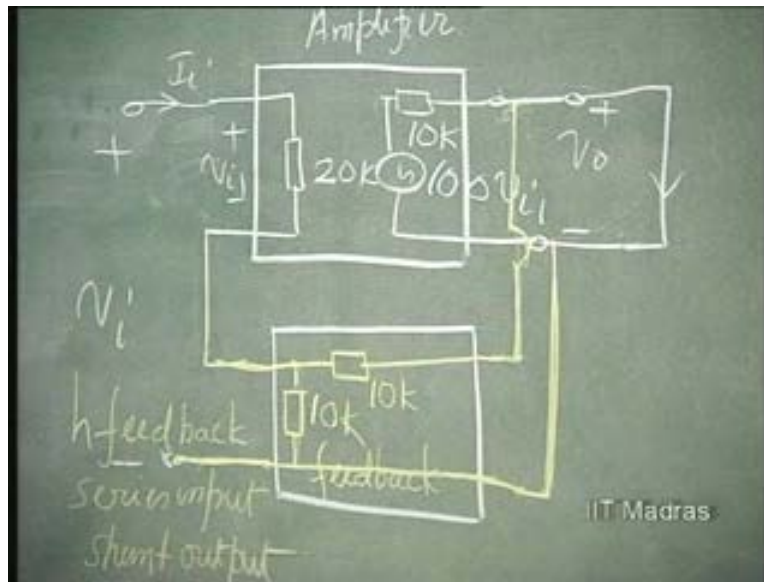 Amplifier
Ii
+
+
Vi1
20k
10k
100Vi1
+
Vo
−
Vi
10k
10k
h-feedback
feedback
−
series input
shunt output
IIT Madras